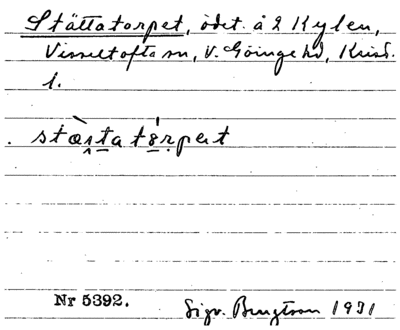 Stättatorpet, ödet. å 2 Kylen,
Visseltofta sn, V. Göinge hd, Krist.
l.
stæ̀ta tórpet
Nr 5392.
Sigv. Bengtson 1931